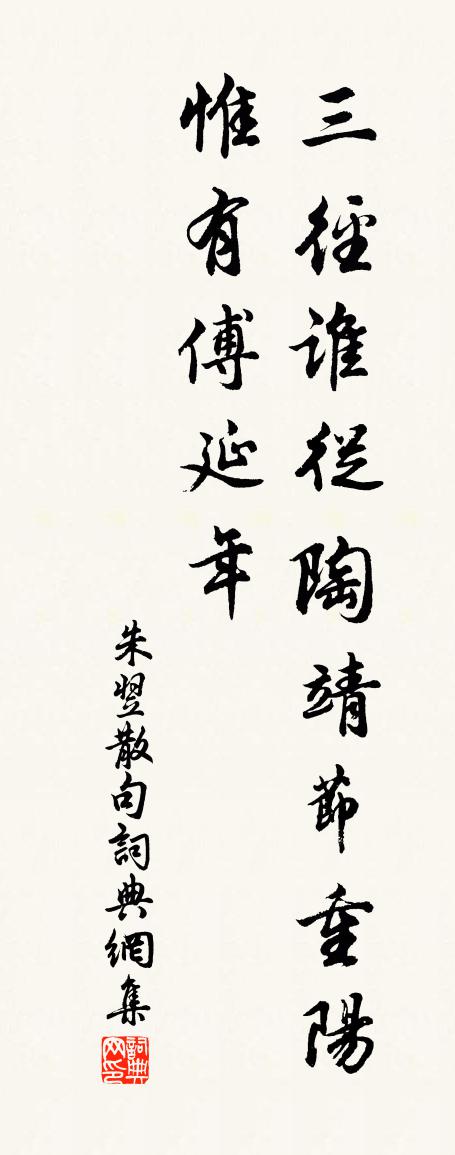 三徑誰從陶靖節重陽
惟有傅延年
朱翌散句詞典網集
詞典网印